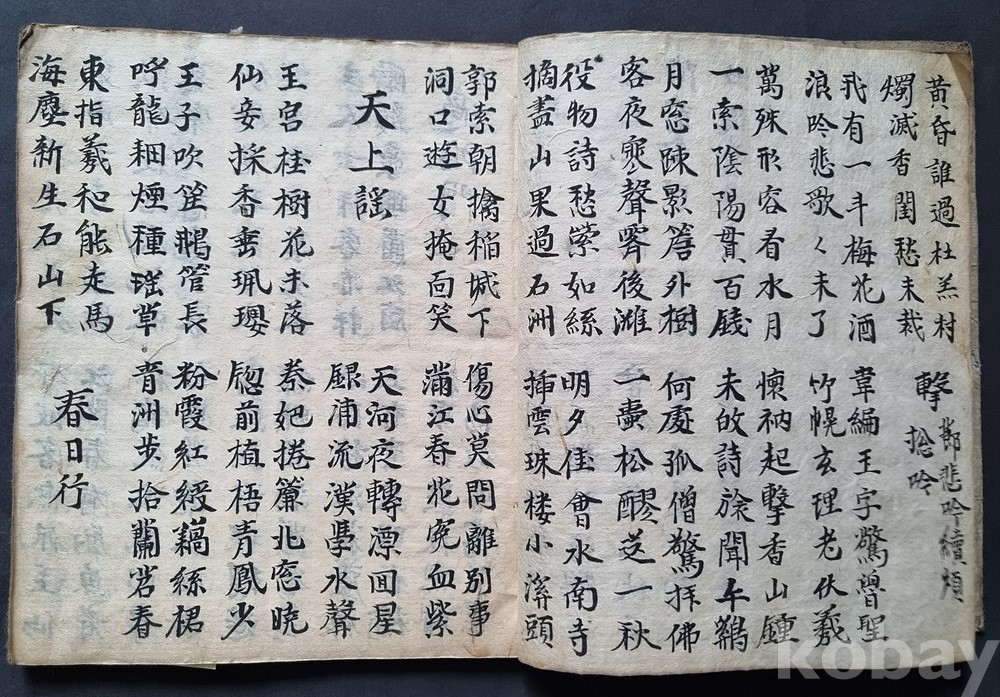 黃昏誰過杜羔村
燭滅香閨愁未裁
鄭悲吟續煩
擊
揔吟
我有一斗梅花酒
浪吟悲歌々未了
韋編王字驚曾聖
竹幌玄理老伏羲
萬殊形容看水月
一索陰陽貫百錢
懷衲起擊香山鍾
未攸詩於聞午鷄
月窓踈影簷外樹
客夜寒聲霽後灘
何處孤僧驚拜佛
一壺松醪送一秋
役物詩愁縈如絲
摘盡山果過石洲
明夕佳會水南寺
揷雲珠楼小溪頭
郭索朝擒稲城下
洞口遊女掩面笑
傷心莫問離別事
滿江春花寃血紫
天上謠
天河夜轉漂回星
銀浦流漢學水聲
王宮桂樹花未落
仙妾採香垂珮瓔
秦妃捲簾北窓曉
窓前植梧青鳳少
王子吹笙鵝管長
呼龍耕煙種瑤草
粉霞紅綬藕絲裙
青洲步拾蘭苕春
東指羲和能走馬
海塵新生石山下
春日行
kobay